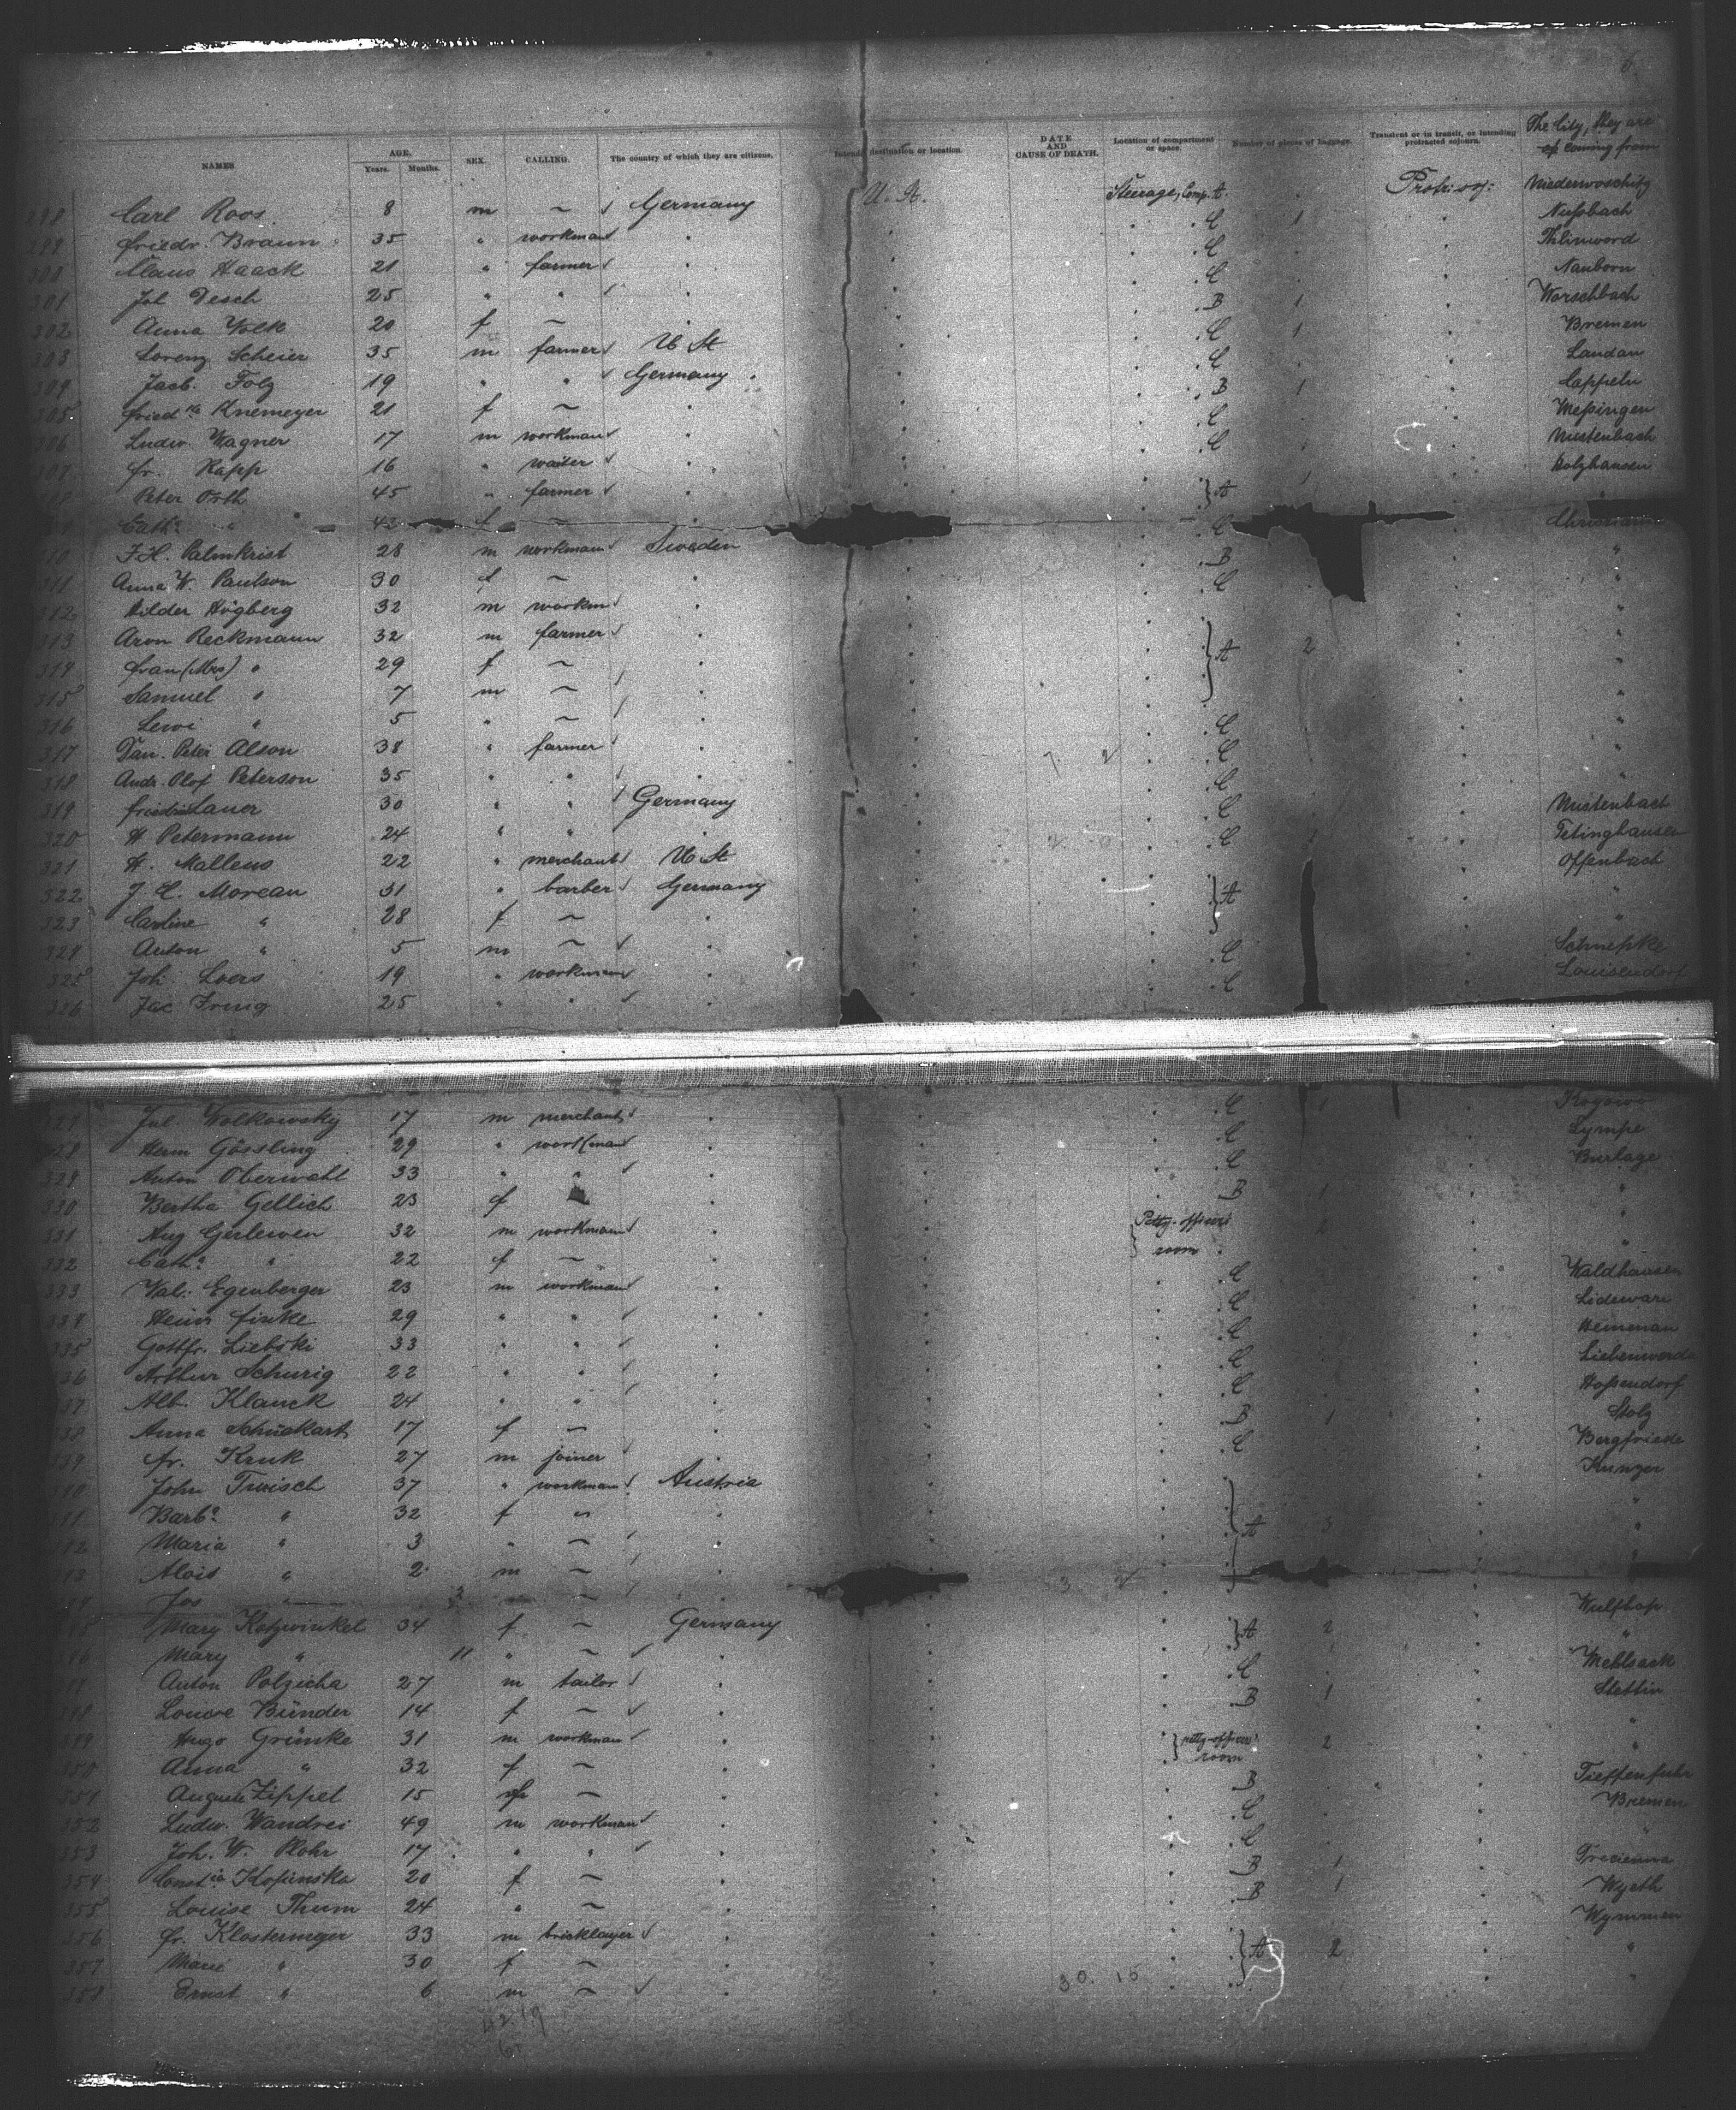 The City, they are
NAMES AGE. Years. Months. SEX. CALLING. The country of which they are citizens. Intended destination or location. DATE AND CAUSE OF DEATH. Location of compartment or space. Number of pieces of baggage. Transient or in transit, or intending protracted sojourn. coming from
298 Carl Roos 8 m ~ Germany U. St. Steerage, Comp. A.
299 Friedr. Braun 35 " workman " " C 1 " Nußbach
300 Claus Haack 21 " farmer " " C "
301 Joh Desch 25 " " " " C " Nauborn
302 Anna Volk 20 f ~ " B 1 "
303 Lorenz Scheier 35 m farmer U St " C 1 " Bremen
304 Jacb. Folz 19 " " Germany " C " Landau
305 Friedke Knemeyer 21 f ~ " " B 1 " Cappeln
306 Ludw. Wagner 17 m workman " " C " Meßingen
307 Fr. Rapp 16 " waiter " " C " Mustenbach
308 Peter Orth 45 " farmer " " A 1 " Holzhausen
309 Cath. " 42 f ~
310 F. H. Palmkrist 28 m workman Sweden " C
311 Anna W. Paulson 30 f ~ " " B "
312 Hilder Högberg 32 m workm " " C "
313 Aron Reckmann 32 m farmer " "
314 Frau (Mrs) " 29 f ~ " " A 2 "
315 Samuel " 7 m ~ " "
316 Lewi " 5 " ~ " "
317 Dan. Peter Alson 38 " farmer " " C "
318 Andr. Olof Peterson 35 " " " " C "
319 Friedrich Lauer 30 " " Germany " C Mustenbach
320 H Petermann 24 " " " " C Tetinghausen
321 H. Mallens 22 " merchant U St " C 1 Offenbach
322 J. C. Moreau 31 " barber Germany " A "
323 Caroline " 28 f ~ " "
324 Anton " 5 m ~ " "
325 Joh. Loers 19 " workman " " C " Schnepke
326 Jac Fring 25 " " " " C " Louisendorf
327 Jul Wolkowsky 17 m merchant " " C 1
328 Herm Gössling 29 " workman " " C Lympe
329 Anton Oberwahl 33 " " " " C Burlage
330 Bertha Gellich 23 f " " B 1 "
331 Aug Gerlewen 32 m workman " " Petty-officers 2 "
332 Cath. " 22 f ~ " " room "
333 Val. Egenberger 23 m workman " " C Waldhausen
334 Heinr Finke 29 " " " " C
335 Gottfr. Liebski 33 " " " " C
336 Arthur Schurig 22 " " " " C Liebenwerda
337 Alb. Klauck 24 " " " " C Hoßendorf
338 Anna Schuckart 17 f ~ " " B 1 Stolz
339 Fr. Kruk 27 m joiner " " C Bergfriede
340 John Twisch 37 " workman Austria " Kunzer
341 Barba " 32 f ~ " " "
342 Maria " 3 " ~ " " A 3 "
343 Alois " 2 m ~ " "
344 Jos " 3 ~
345 Mary Kotzwinkel 34 f ~ Germany " A 2
346 Mary " 11 " ~ " " "
347 Anton Polzicha 27 m tailor " " C Mehlsack
348 Louise Bünder 14 f ~ " " B 1 Stettin
349 Hugo Grünke 31 m workman " " petty-officers' 2 "
350 Anna " 32 f ~ " " room "
351 Auguste Zippel 15 f ~ " " B "
352 Ludw. Wandrei 49 m workman " " C Bremen
353 Joh. W. Plohr 17 " " " " C "
354 20 f ~ " " B 1
355 Louise Thum 24 " ~ " " B 1
356 Fr. Klostermeyer 33 m bricklayer " " Wymmen
357 Marie " 30 f ~ " " A 2 "
358 Ernst " 6 m ~ " " "
30. 15